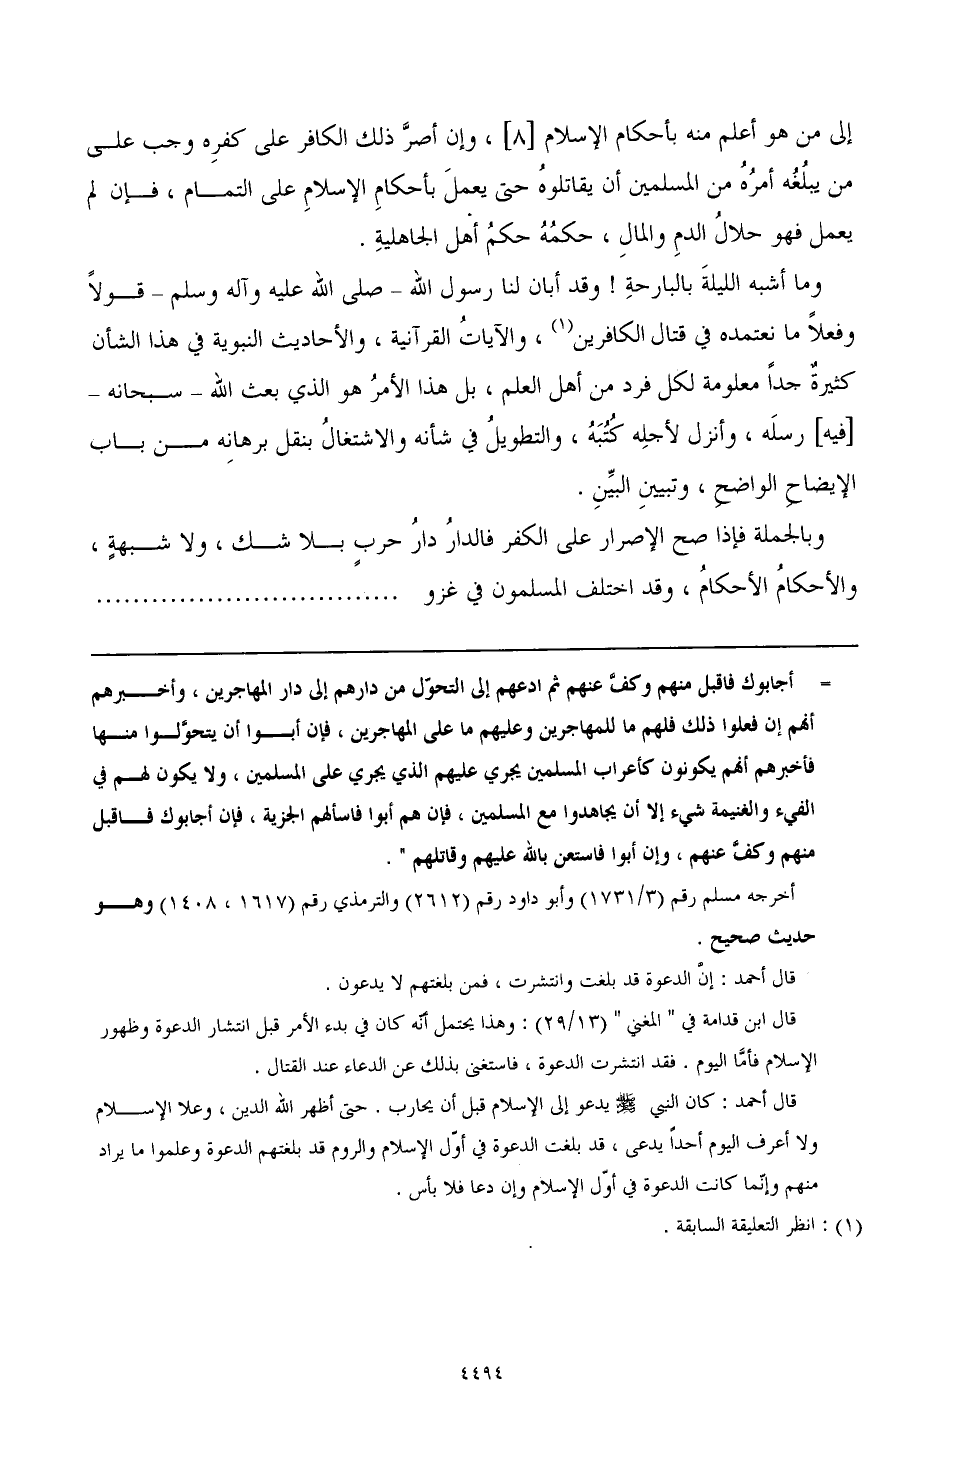 إلى من هو أعلم منه بأحكام الإسلام [٨] ، وإن أصرَّ ذلك الكافر على كفرِه وجب علـى
من يبلُغُه أمرُهُ من المسلمين أن يقاتلوهُ حتى يعملَ بأحكامِ الإسلامِ على التمـام ، فـإن لم
يعمل فهو حلالُ الدمِ والمالِ ، حكمُهُ حكمُ أهل الجاهليةِ .
وما أشبه الليلةَ بالبارحةِ ! وقد أبان لنا رسول الله - صلى الله عليه وآله وسلم - قـولاً
وفعلاً ما نعتمده في قتال الكافرين(١) ، والآياتُ القرآنية ، والأحاديث النبوية في هذا الشأن
كثيرةٌ جداً معلومة لكل فرد من أهل العلم ، بل هذا الأمرُ هو الذي بعث الله - سـبحانه -
[فيه] رسلَه ، وأنزل لأجلِه كُتُبَهُ ، والتطويلُ في شأنه والاشتغالُ بنقل برهانِه مـن بـاب
الإيضاحِ الواضحِ ، وتبيينِ البيِّنِ .
وبالجملة فإذا صح الإصرار على الكفر فالدارُ دارُ حربٍ بـلا شـك ، ولا شـبهةٍ ،
والأحكامُ الأحكامُ ، وقد اختلف المسلمون في غزو .................................
= أجابوك فاقبل منهم وكفَّ عنهم ثم ادعهم إلى التحوّل من دارهم إلى دار المهاجرين ، وأخـبرهم
أنهم إن فعلوا ذلك فلهم ما للمهاجرين وعليهم ما على المهاجرين ، فإن أبـوا أن يتحوَّلـوا منـها
فأخبرهم أنهم يكونون كأعراب المسلمين يجري عليهم الذي يجري على المسلمين ، ولا يكون لهـم في
الفيء والغنيمة شيء إلا أن يجاهدوا مع المسلمين ، فإن هم أبوا فاسألهم الجزية ، فإن أجابوك فـاقبل
منهم وكفَّ عنهم ، وإن أبوا فاستعن بالله عليهم وقاتلهم " .
أخرجه مسلم رقم (١٧٣١/٣) وأبو داود رقم (٢٦١٢) والترمذي رقم (١٦١٧ ، ١٤٠٨) وهـو
حديث صحيح .
قال أحمد : إنَّ الدعوة قد بلغت وانتشرت ، فمن بلغتهم لا يدعون .
قال ابن قدامة في " المغني " (٢٩/١٣) : وهذا يحتمل أنّه كان في بدء الأمر قبل انتشار الدعوة وظهور
الإسلام فأمَّا اليوم . فقد انتشرت الدعوة ، فاستغنى بذلك عن الدعاء عند القتال .
قال أحمد : كان النبي ﷺ يدعو إلى الإسلام قبل أن يحارب . حتى أظهر الله الدين ، وعلا الإسـلام
ولا أعرف اليوم أحداً يدعى ، قد بلغت الدعوة في أوّل الإسلام والروم قد بلغتهم الدعوة وعلموا ما يراد
منهم وإنّما كانت الدعوة في أوّل الإسلام وإن دعا فلا بأس .
(١) : انظر التعليقة السابقة .
٤٤٩٤